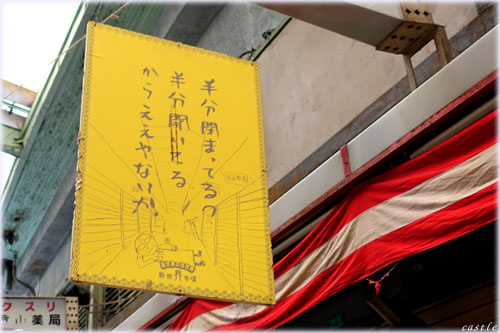 半分閉まってるの
半分開いてる
からええやないか。
新世界市場
クスリ
小薬局
castle